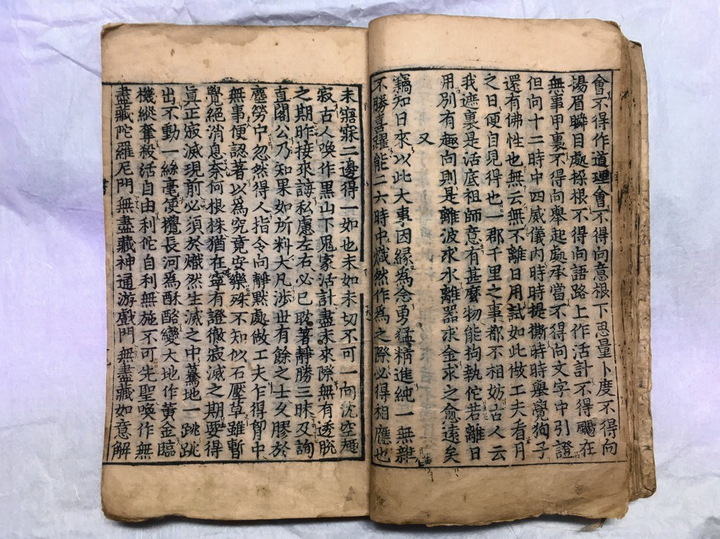 會不得作道理會不得向意根下思量卜度不得向
揚眉瞬目處挅根不得向語路上作活計不得颺在
無事甲裏不得向舉起處承當不得向文字中引證
但向十二時中四威儀內時時提撕時時舉覺狗子
還有佛性也無云無不離日用試如此做工夫看月
之日便自見得也一郡千里之事都不相妨古人云
我這裏是活底祖師意有甚麼物能拘執佗若離日
用別有趣向則是離波求水離器求金求之愈遠矣
又
竊知日來以此大事因緣為念勇猛精進純一無雜
不勝喜躍能二六時中熾然作為之際必得相應也
未寤寐二邊得一如也未如未切不可一向沈空趣
寂古人喚作黑山下鬼家活計盡未來際無有透脫
之期昨接來誨私慮左右必已耽著靜勝三昧及詢
直閣公乃知果如所料大凡涉世有餘之士久膠於
塵勞中忽然得人指令向靜默處做工夫乍得胷中
無事便認著以為究竟安樂殊不知似石壓草雖暫
覺絕消息奈何根株猶在寧有證徹寂滅之期要得
眞正寂滅現前必須於熾然生滅之中驀地一跳跳
出不動一絲毫便攪長河為酥酪變大地作黃金臨
機縱奪殺活自由利佗自利無施不可先聖喚作無
盡藏陀羅尼門無盡藏神通游戲門無盡藏如意解